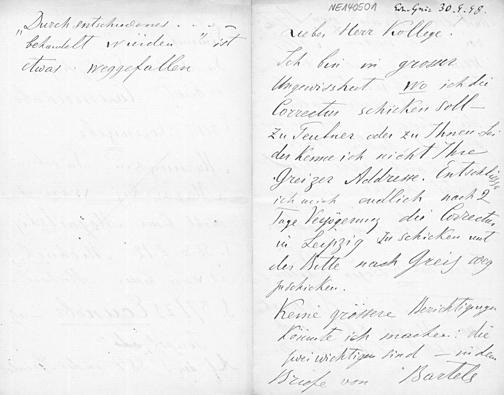 „Durch entschiedenes . . .
behandelt würden" ist
etwas weggefallen
NEA40501
30.4.98.
Lieber Herr Kollege!
Ich bin in grosser
Ungewissheit wo ich die
Correctur schicken soll
zu Teubner oder zu Ihnen. Lei
der kenne ich nicht Ihre
Greizer Addresse. Entschliesse
ich mich endlich nach 2
Tage Verzögerung die Correctur
in Leipzig zu schicken mit
der Bitte nach Greiz
zu schicken.
Keine grössere Berichtigungen
könnte ich machen: die
zwei wichtigen sind — in dem
Briefe von Bartels